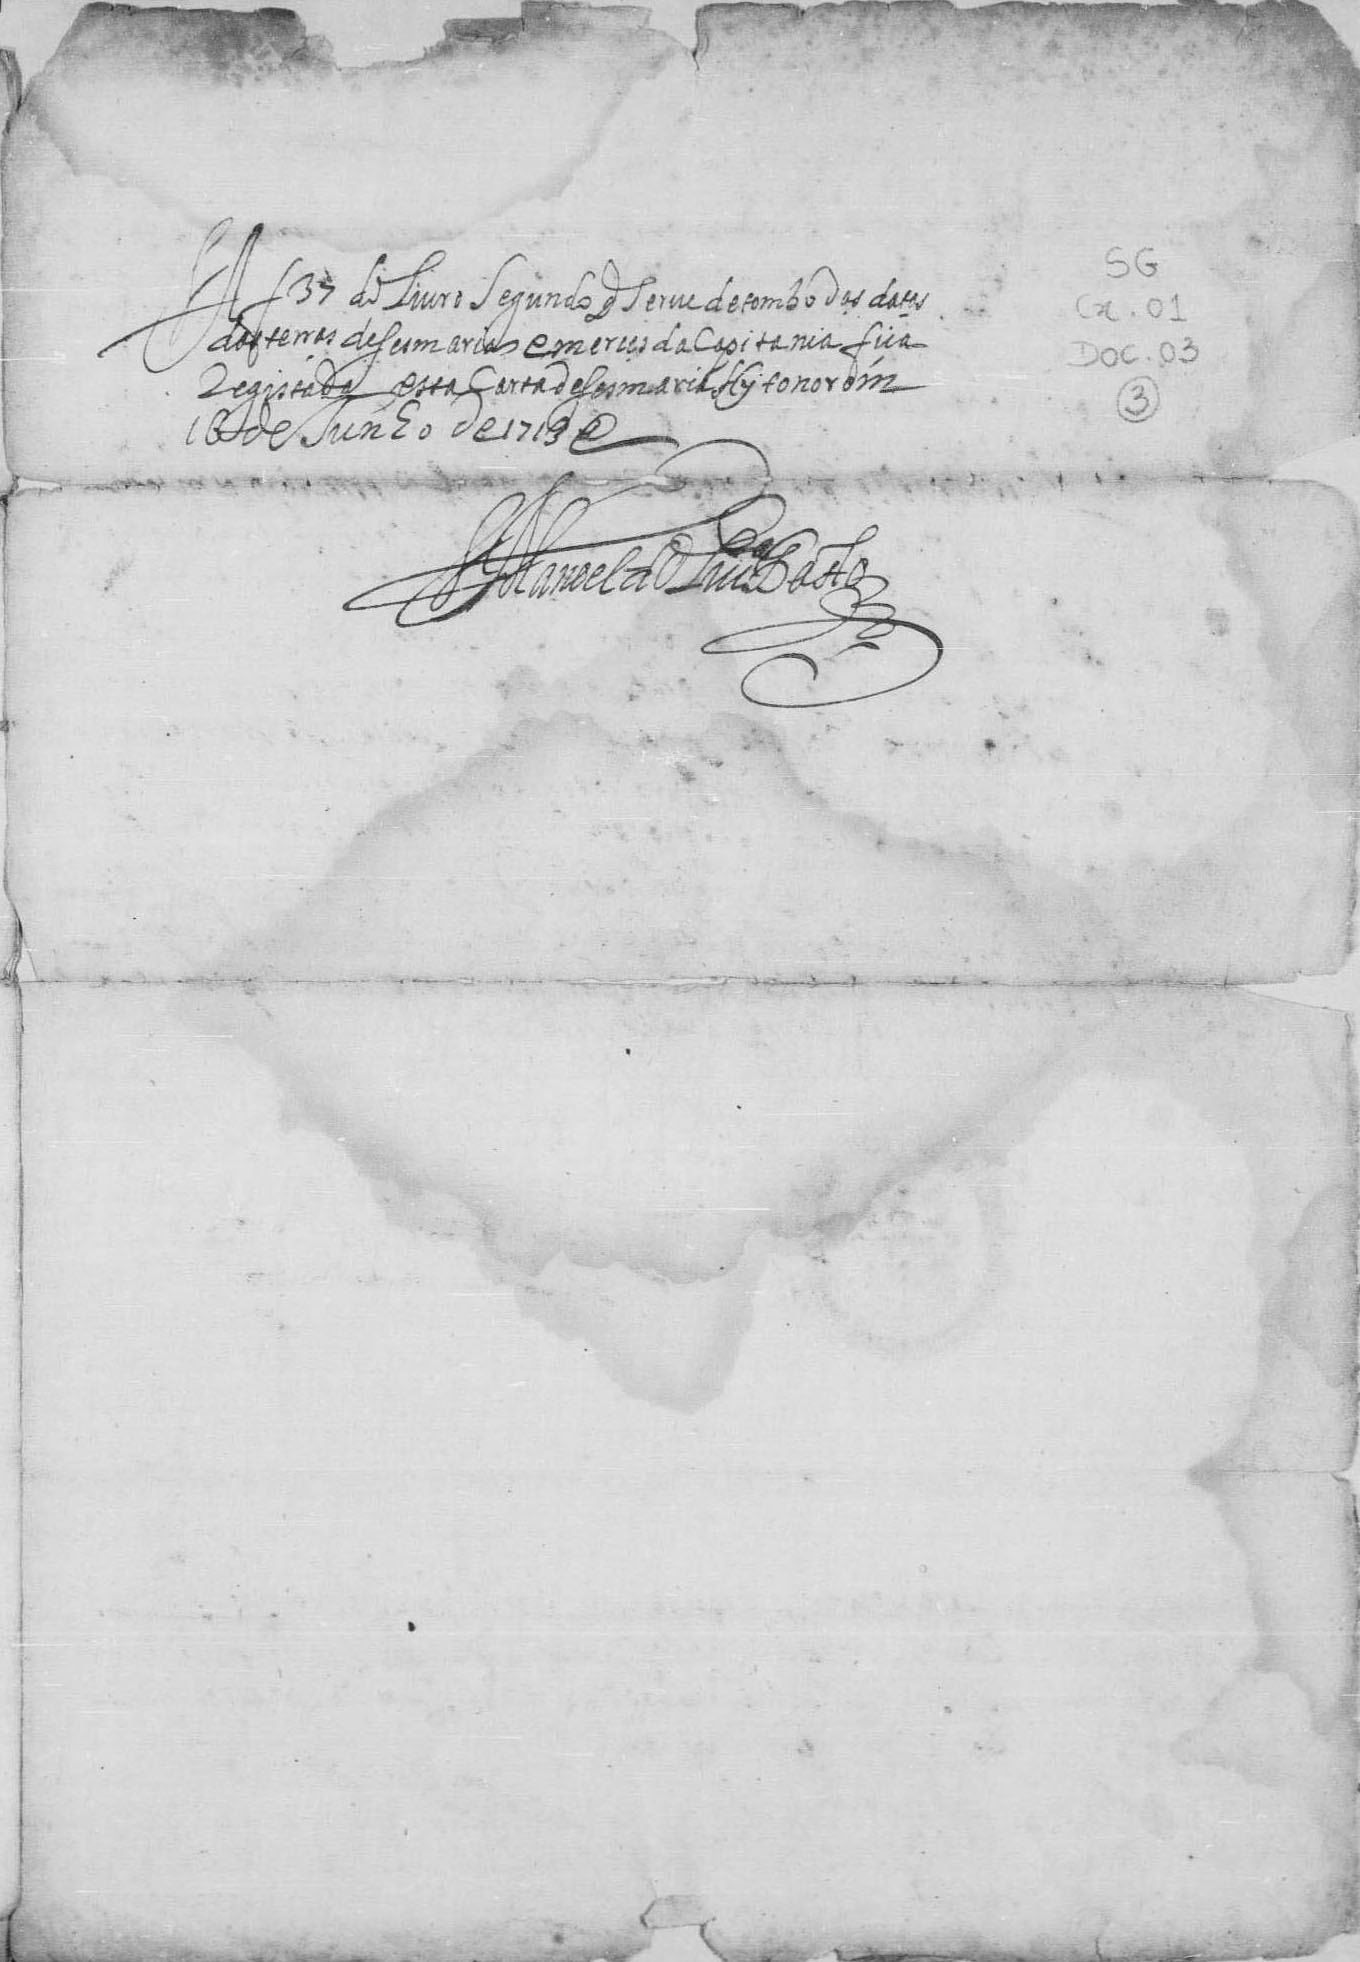 A f 37 do Liuro Segundo q Serue de tombo das datas
das terras de Sesmarias e merces da Capitania fica
Registada esta Carta de Sesmaria
16 de Junho de 1713
Manoel
SG
Cx. 01
DOC. 03
3